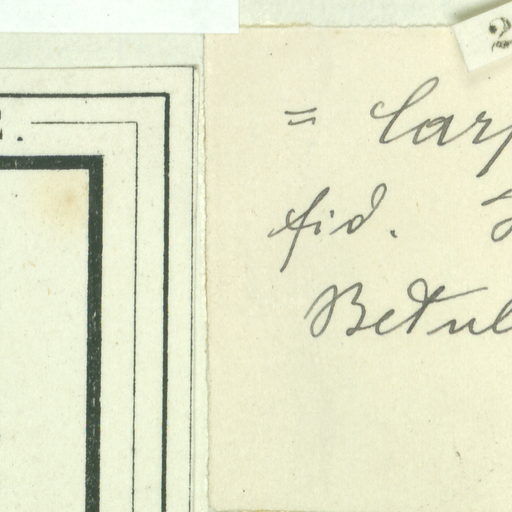 2
= Carp
fid.
Betul